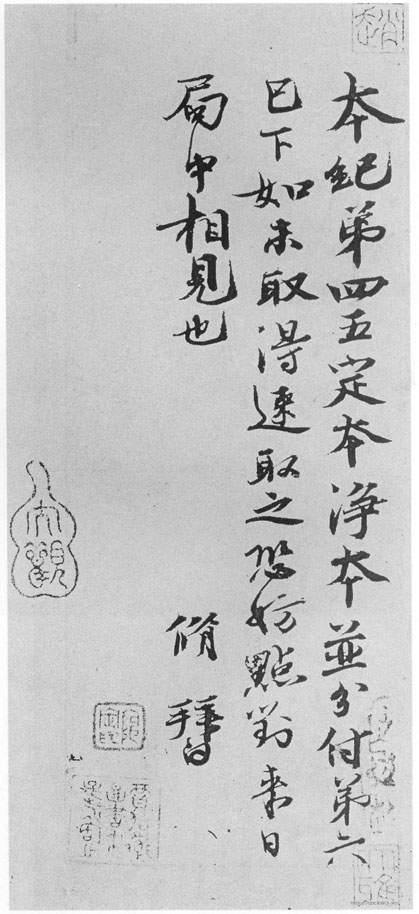 本紀第四五定本淨本並分付第六
已下如未取得速取之恐妨點對來日
局中相見也
脩 拜白
大觀